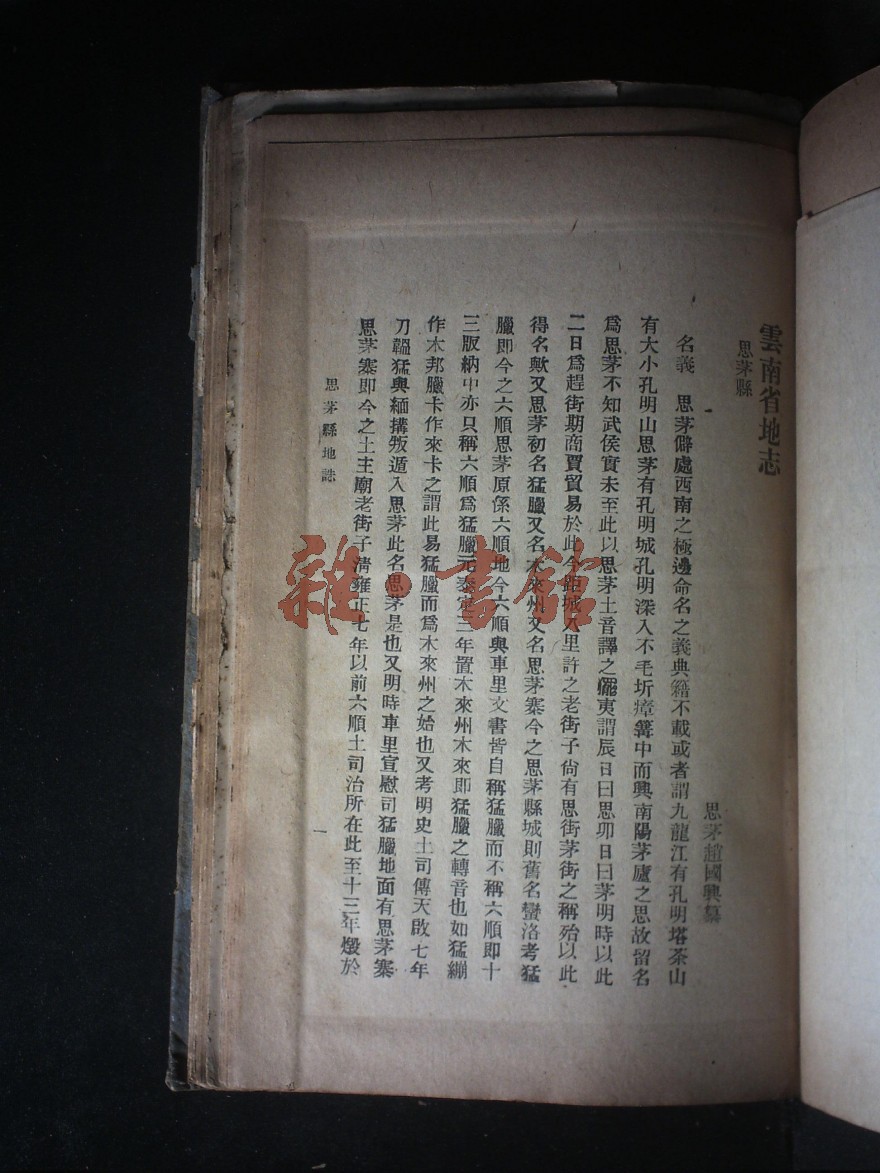 雲南省地志
思茅縣
思茅趙國興纂
名義　思茅僻處西南之極邊命名之義典籍不載或者謂九龍江有孔明塔茶山
有大小孔明山思茅有孔明城孔明深入不毛圻瘴籌中而興南陽茅廬之思故留名
爲思茅不知武侯實未至此以思茅土音譯之擺夷謂辰日曰思卯日曰茅明時以此
二日爲趕街期商賈貿易於此今距城八里許之老街子尙有思街茅街之稱殆以此
得名歟又思茅初名猛臘又名木來州又名思茅寨今之思茅縣城則舊名蠻洛考猛
臘即今之六順思茅原係六順地今六順與車里文書皆自稱猛臘而不稱六順即十
三版納中亦只稱六順爲猛臘元泰定三年置木來州木來即猛臘之轉音也如猛繃
作木邦臘卡作來卡之謂此易猛臘而爲木來州之始也又考明史土司傳天啟七年
刀韞猛與緬搆叛遁入思茅此名思茅是也又明時車里宣慰司猛臘地面有思茅寨
思茅寨即今之土主廟老街子淸雍正七年以前六順土司治所在此至十三年燬於
思茅縣地誌
一
雜·書館